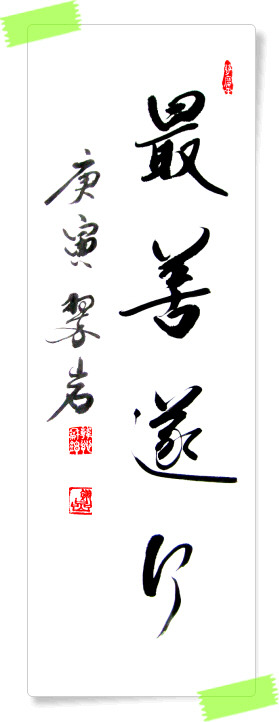 最善遂行
庚寅 翠岩